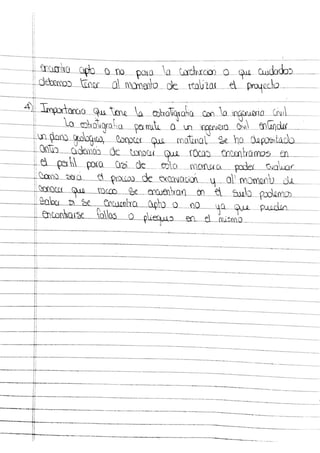 encuentra apto o no para la construccion o que cuidados
debemos tener al momento de realizar el proyecto.
4) Importancia que tiene la estratigrafia con la ingenieria Civil
La estratigrafia permite a un ingeniero civil entender
un plano geologico, conocer que material se ha depositado
antes ademas de conocer que rocas encontramos en
el perfil para asi de esta manera poder evaluar
como sera el proceso de excavacion y al momento de
conocer que rocas se encuentran en el suelo podemos
saber si se encuentra apto o no ya que pueden
encontrarse fallas o pliegues en el mismo.